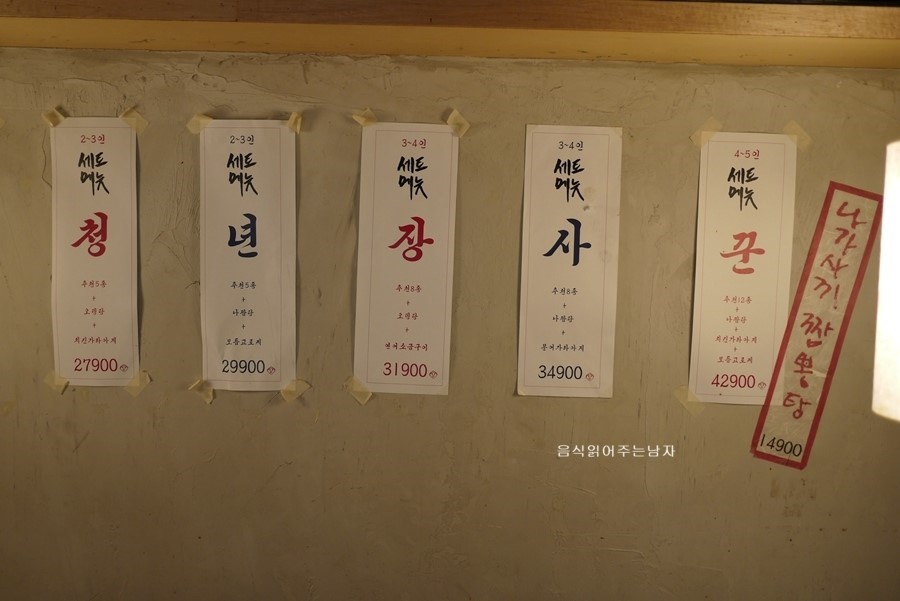 2~3인
세트
메뉴
청
추천5종
+
오짱탕
+
치킨가라아게
27900
2~3인
세트
메뉴
년
추천5종
+
나짱탕
+
모듬고로케
29900
3~4인
세트
메뉴
장
추천8종
+
오짱탕
+
31900
3~4인
세트
메뉴
사
추천8종
+
나짱탕
+
문어가라아게
34900
4~5인
세트
메뉴
꾼
추천12종
+
나짱탕
+
치킨가라아게
+
모듬고로케
42900
나가사끼 짬뽕탕
14900
음식읽어주는남자